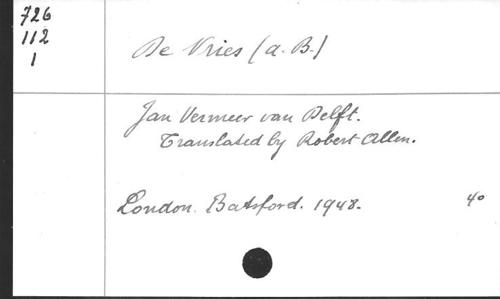 726
112
1
De Vries (A. B.)
Jan Vermeer van Delft.
Translated by Robert Allen.
London. Batsford. 1948.
40